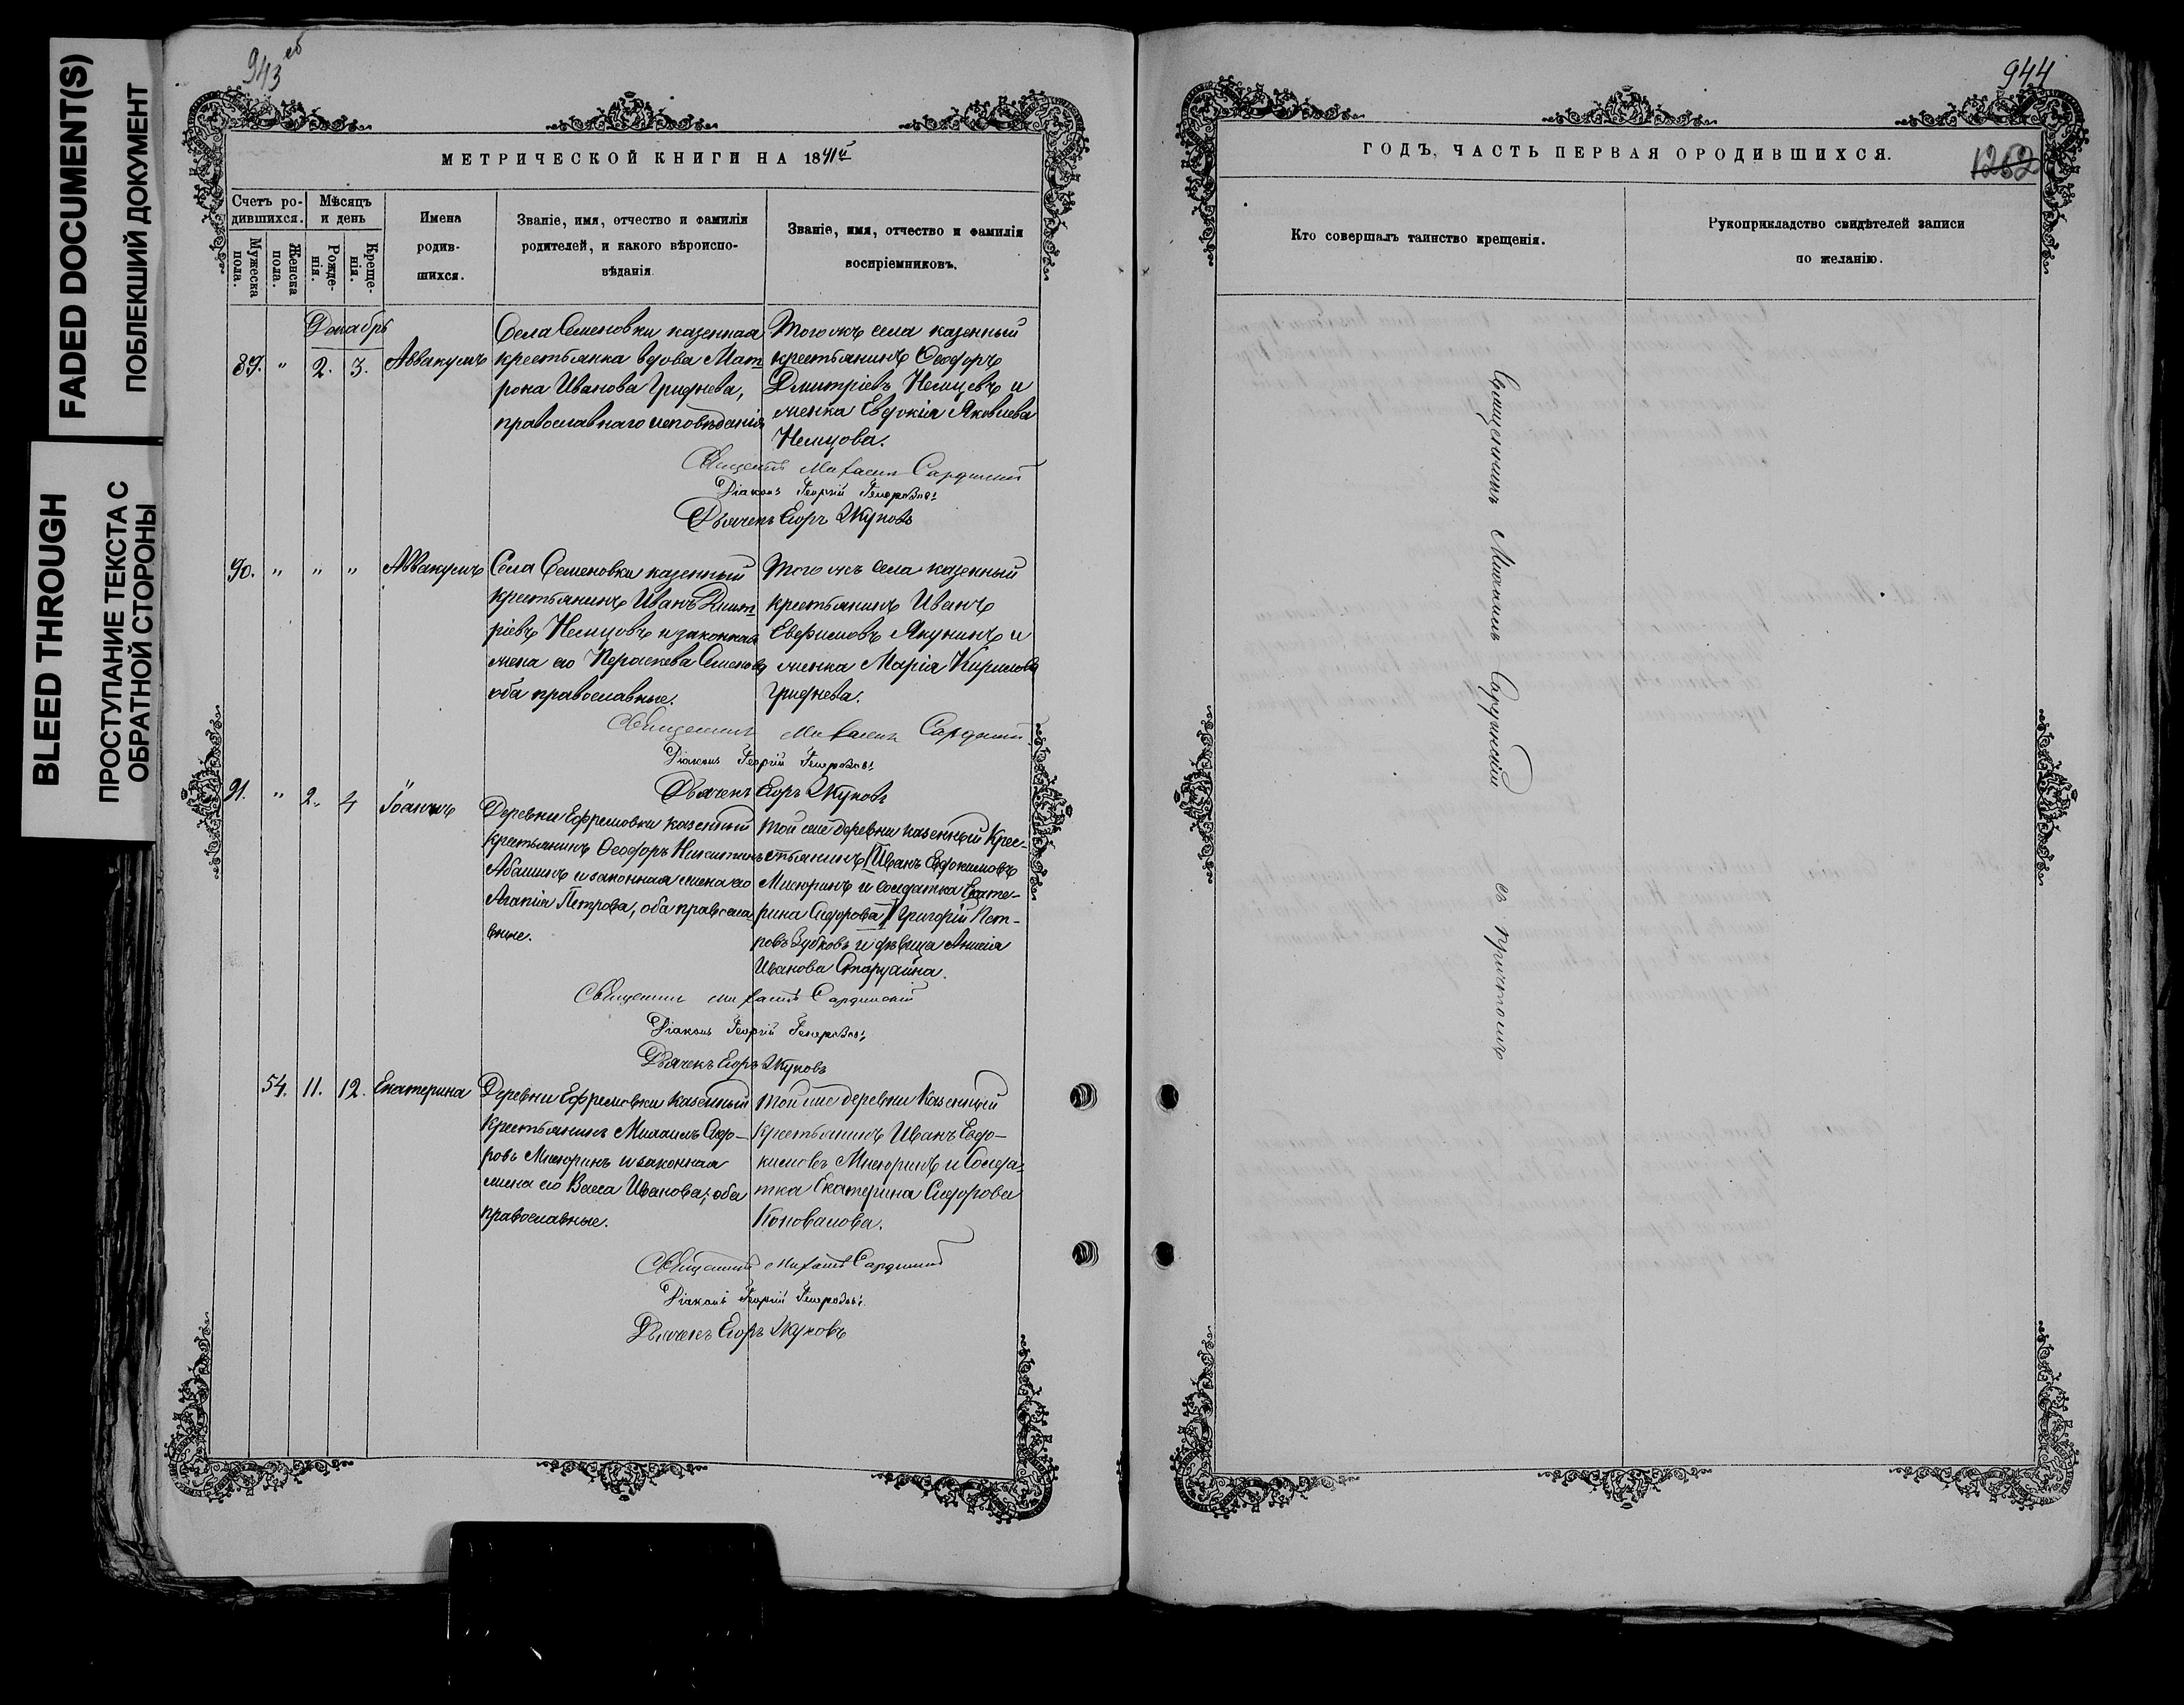 FADED DOCUMENT(S)
ПОБЛЕКШИЙ ДОКУМЕНТ
BLEED THROUGH
ПРОСТУПАНИЕ ТЕКСТА С
ОБРАТНОЙ СТОРОНЫ
943 об
МЕТРИЧЕСКОЙ КНИГИ НА 1841й
Счетъ ро-
дившихся.
Мѣсяцъ
и день
Мужеска
пола.
Женска
пола.
Рожде-
нія.
Креще-
нія.
Имена
родив-
шихся.
Званіе, имя, отчество и фамилія
родителей, и какого вѣроиспо-
вѣданія.
Званіе, имя, отчество и фамилія
воспріемниковъ.
Декабрь
89. " 2. 3. Аввакумъ
Села Семеновки казенная
крестьянка вдова Мат
рона Иванова Гриднева,
православнаго исповѣданія
Того жъ села казенный
крестьянинъ Ѳеодоръ
Дмитріевъ Немцевъ и
женка Евдокія Яковлева
Немцова.
Священникъ Михаилъ Сардинскій
Діаконъ Георгій
Дьячекъ Егоръ Жуковъ
90. " " " Аввакумъ
Села Семеновки казенный
крестьянинъ Иванъ Дмит
ріевъ Немцовъ и законная
жена его Пераскева Семенова
оба православные.
Того жъ села казенный
крестьянинъ Иванъ
Евфимовъ Якунинъ и
женка Марія Кирилова
Гриднева.
Священникъ Михаилъ Сардинскій
Діаконъ Георгій
Дьячекъ Егоръ Жуковъ
91. " 2. 4 Іоаннъ
Деревни Ефремовки казенный
крестьянинъ Ѳеодоръ Никитинъ
Абашинъ и законная жена его
Агапія Петрова, оба правосла
вные.
Той же деревни казенный Крес-
стьянинъ Иванъ Евдокимовъ
Мисюринъ и солдатка Екате-
рина Сидорова Григорій Пет-
ровъ Зубковъ и дѣвица Анисія
Иванова
Священникъ Михаилъ Сардинскій
Діаконъ Георгій
Дьячекъ Егоръ Жуковъ
54. 11. 12. Екатерина
Деревни Ефремовки казенный
Крестьянинъ Михаилъ Сидо-
ровъ Мисюринъ и законная
жена его Васса Иванова, оба
православные.
Той же деревни Казенный
Крестьянинъ Иванъ Евдо-
кимовъ Мисюринъ и Солда-
тка Екатерина Сидорова
Коновалова.
Священникъ Михаилъ Сардинскій
Діаконъ Георгій
Дьячекъ Егоръ Жуковъ
944
ГОДЪ, ЧАСТЬ ПЕРВАЯ О РОДИВШИХСЯ.
1262
Кто совершалъ таинство крещенія.
Рукоприкладство свидѣтелей записи
по желанію.
Священникъ Михаилъ Сардинскій съ причтомъ